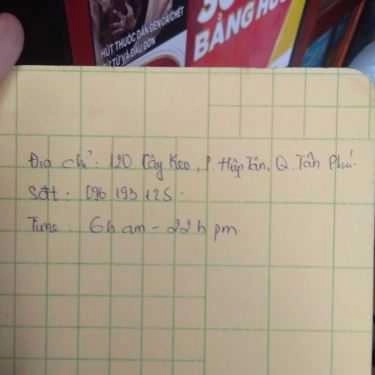 30
BẰNG HÚ
HÚT THUỐC DẪN ĐẾN CÁI CHẾT
TỪ TỪ VÀ ĐAU ĐỚN
Địa chỉ: 120 Cây Keo, P Hiệp Tân, Q. Tân Phú.
Sđt: 096 193 125.
Time: 6h am - 22h pm